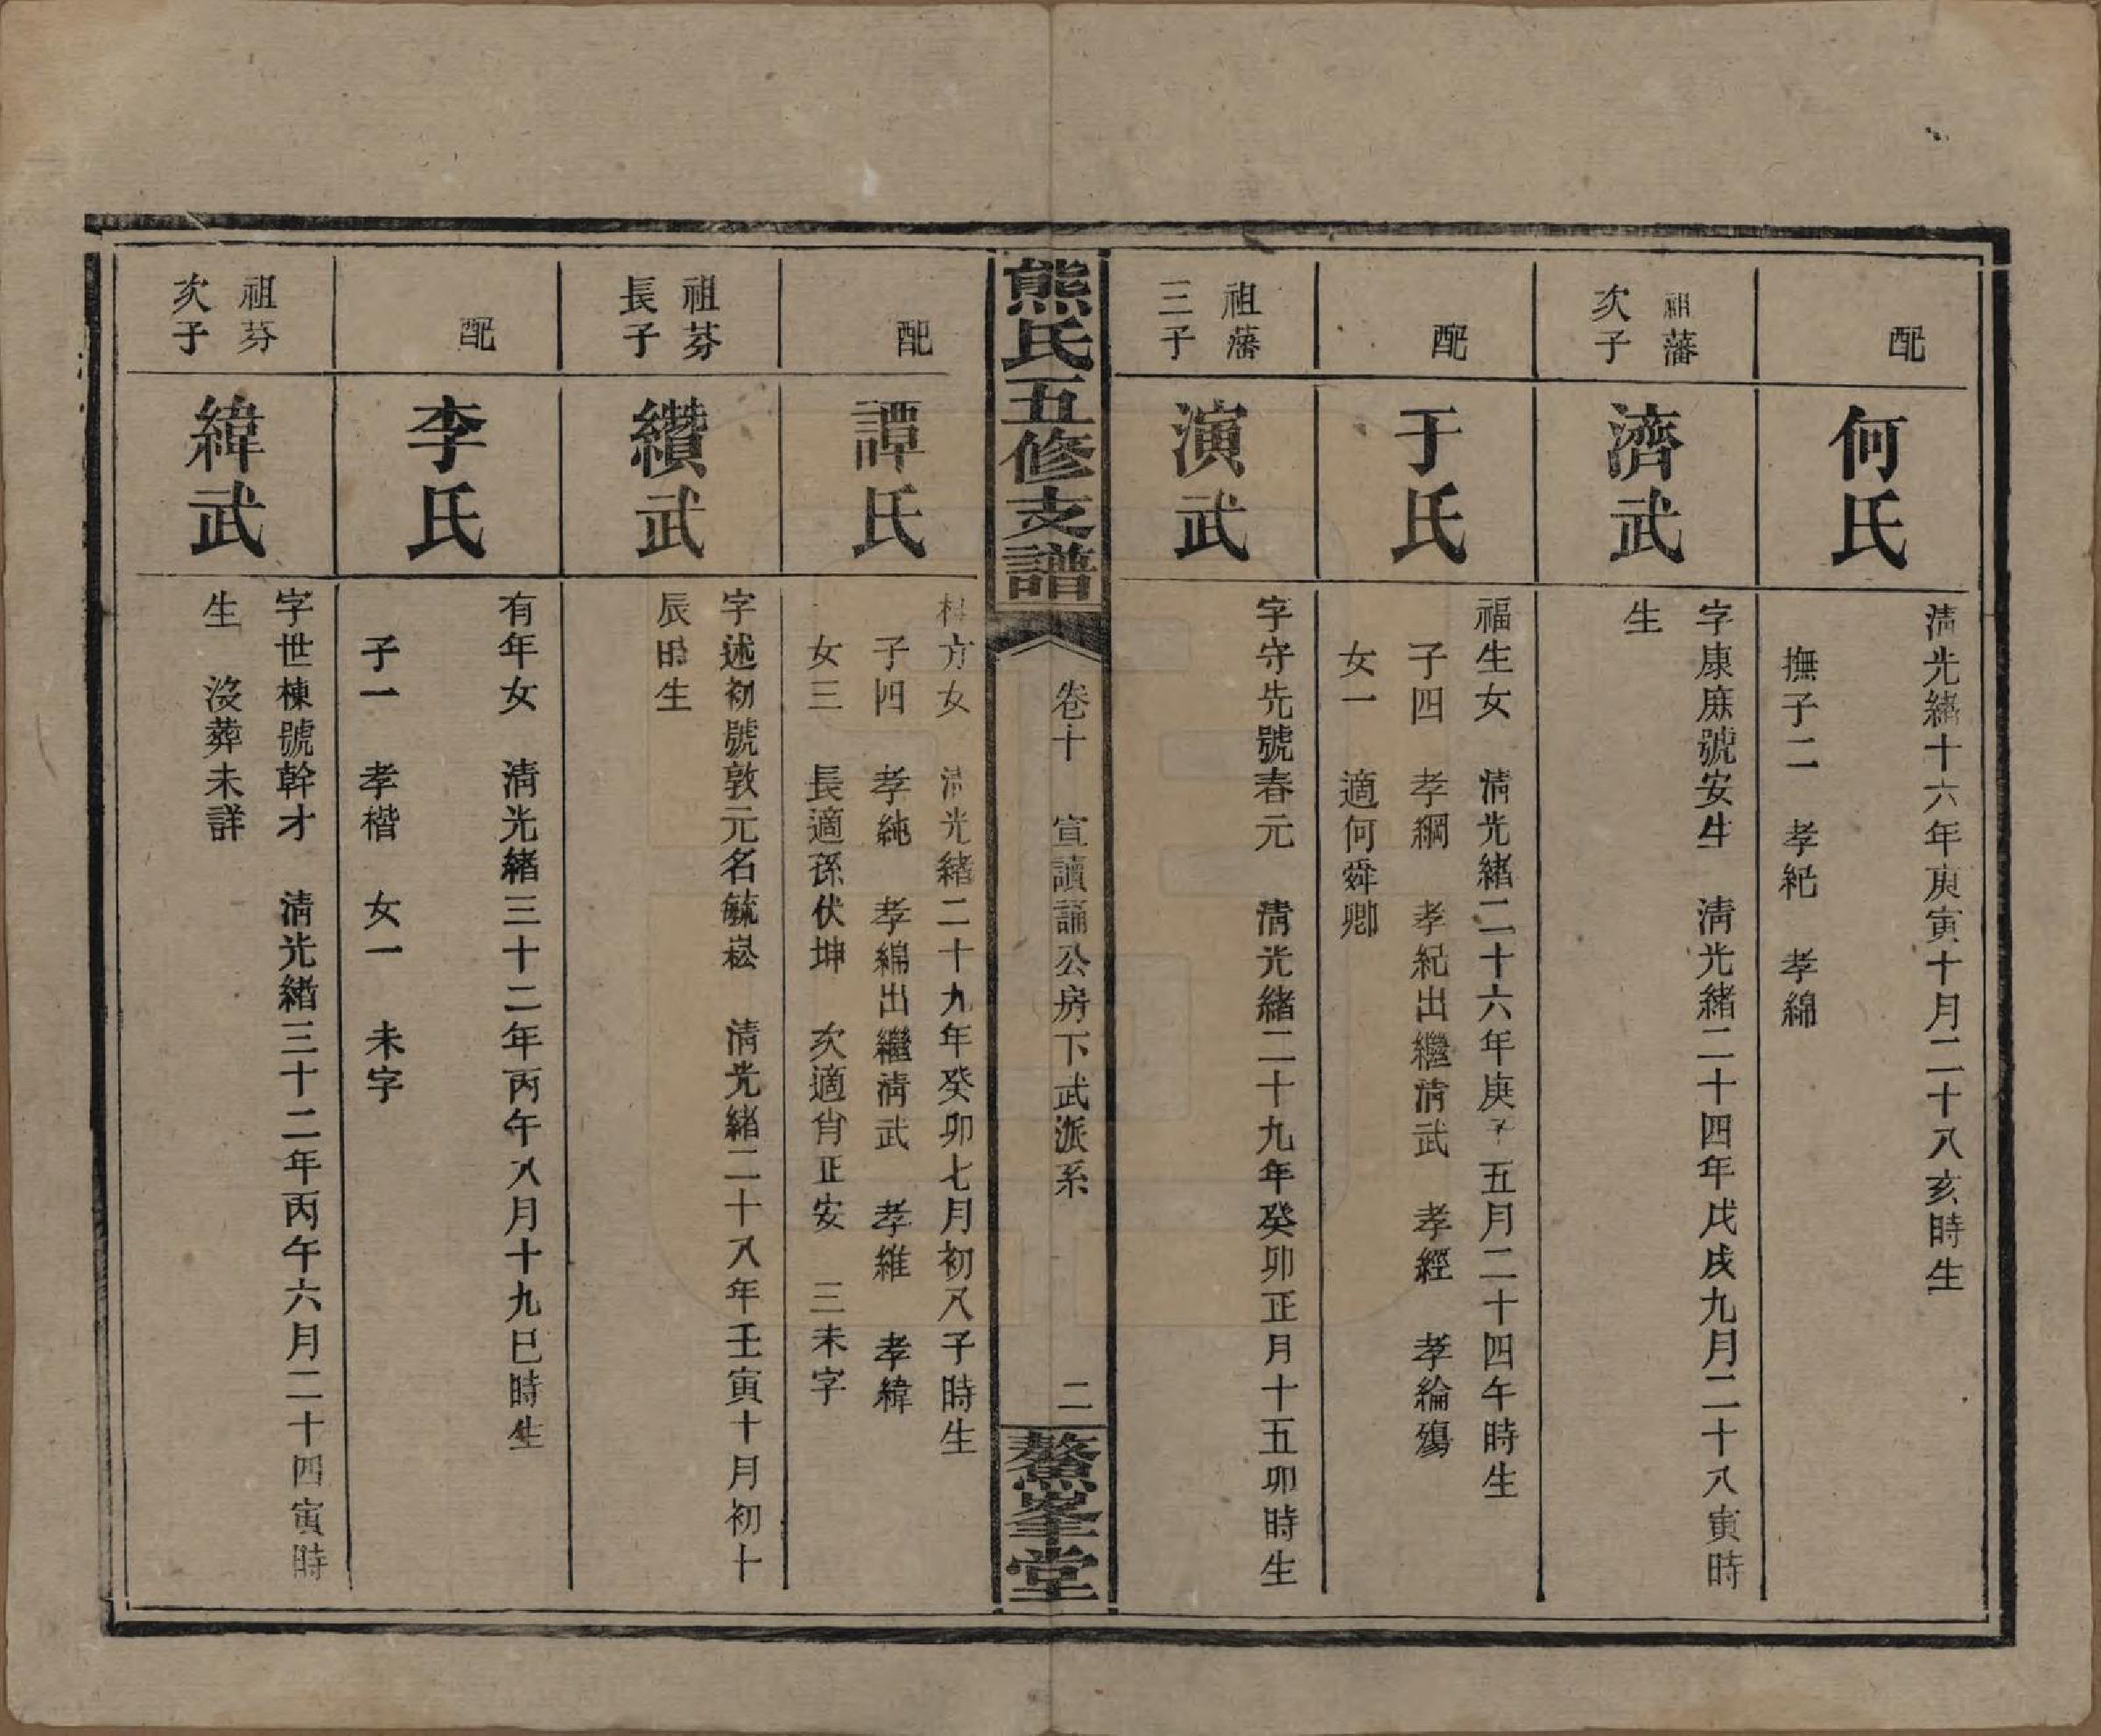 配
何氏
清光緒十六年庚寅十月二十八亥時生
撫子二　孝紀　孝綿
祖藩
次子
濟武
字康庶號安生　清光緒二十四年戊戌九月二十八寅時
生
配
于氏
福生女　清光緒二十六年庚子五月二十四午時生
子四　孝綱　孝紀出繼清武　孝經　孝綸殤
女一　適何舜卿
祖藩
三子
演武
字守先號春元　清光緒二十九年癸卯正月十五卯時生
熊氏五修支譜
卷十　宣讀誦公房下武派系
二
鰲峯堂
配
譚氏
方女　清光緒二十九年癸卯七月初八子時生
子四　孝純　孝綿出繼清武　孝維　孝緯
女三　長適孫伏坤　次適肖正安　三未字
祖芬
長子
纘武
字述初號敦元名毓崧　清光緒二十八年壬寅十月初十
辰時生
配
李氏
有年女　清光緒三十二年丙午八月十九巳時生
子一　孝楷　女一　未字
祖芬
次子
緯武
字世棟號幹才　清光緒三十二年丙午六月二十四寅時
生　沒葬未詳